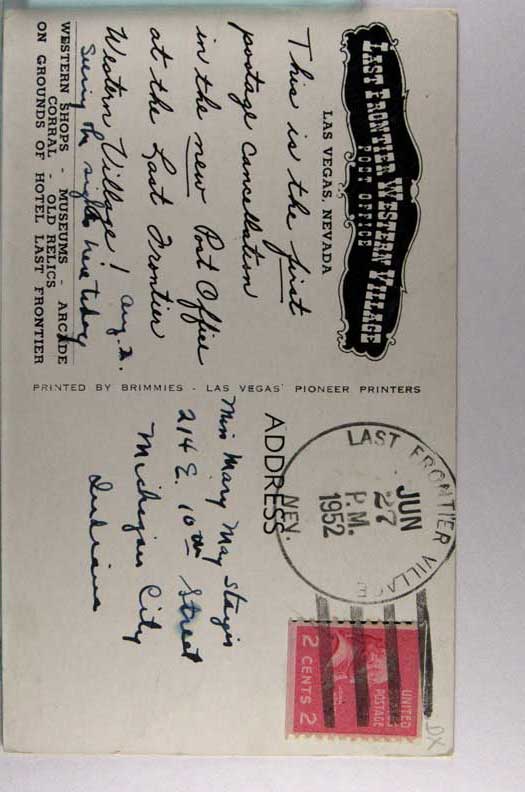 LAST FRONTIER WESTERN VILLAGE
POST OFFICE
LAS VEGAS, NEVADA
This is the first
postage cancellation
in the new Post Office
at the Last Frontier
Western Village! Aug. 2.
Seeing the sights here today
WESTERN SHOPS - MUSEUMS - ARCADE
CORRAL - OLD RELICS
ON GROUNDS OF HOTEL LAST FRONTIER
PRINTED BY BRIMMIES - LAS VEGAS' PIONEER PRINTERS
LAST FRONTIER VILLAGE
JUN
27
P.M.
1952
NEV.
UNITED
STATES
POSTAGE
2 CENTS 2
ADDRESS
Miss Mary May
214 E. 10th Street
Michigan City
Indiana
DX